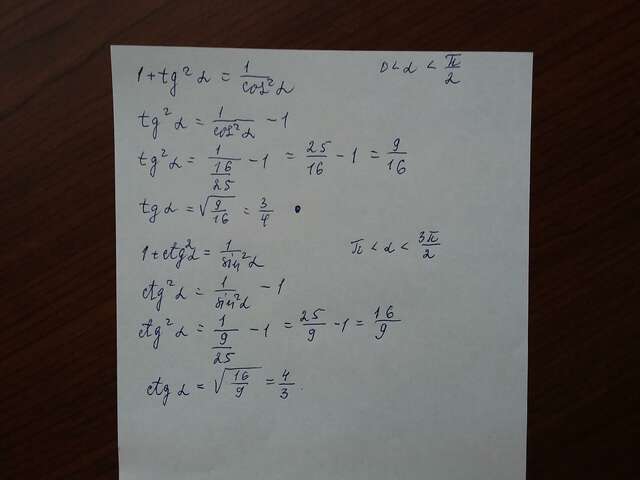 1 + tg²α = 1/cos²α    0 < α < π/2
tg²α = 1/cos²α - 1
tg²α = 1/(16/25) - 1 = 25/16 - 1 = 9/16
tg α = √(9/16) = 3/4 .
1 + ctg²α = 1/sin²α    π < α < 3π/2
ctg²α = 1/sin²α - 1
ctg²α = 1/(9/25) - 1 = 25/9 - 1 = 16/9
ctg α = √(16/9) = 4/3 .